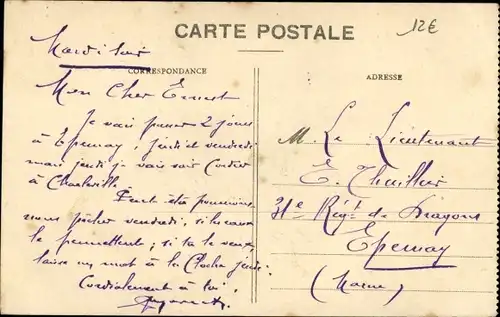 CARTE POSTALE
12€
Mardi soir
CORRESPONDANCE
ADRESSE
Mon Cher Ernest
Je vais passer 2 jours
à Epernay, jeudi et vendredi
mais jeudi je vais voir
à Charleville
Peut-être pourrions
nous pêcher vendredi, si les eaux
le permettent; si tu le veux,
laisse un mot à la Cloche jeudi.
Cordialement à toi.
M. Le Lieutenant
E. Thuillier
31e Régt de Dragons
Epernay
(Marne)